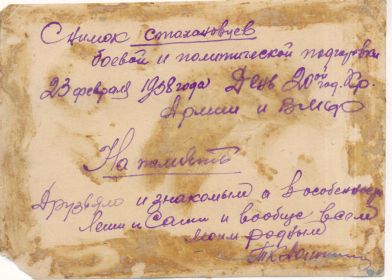 Снимок стахановцев
боевой и политической подготовки
23 февраля 1938 года День 20ой год. Кр.
Армии и ВМФ
На память
Друзьям и знакомым а в особенности
Лени и Саши и вообще всем
моим родным